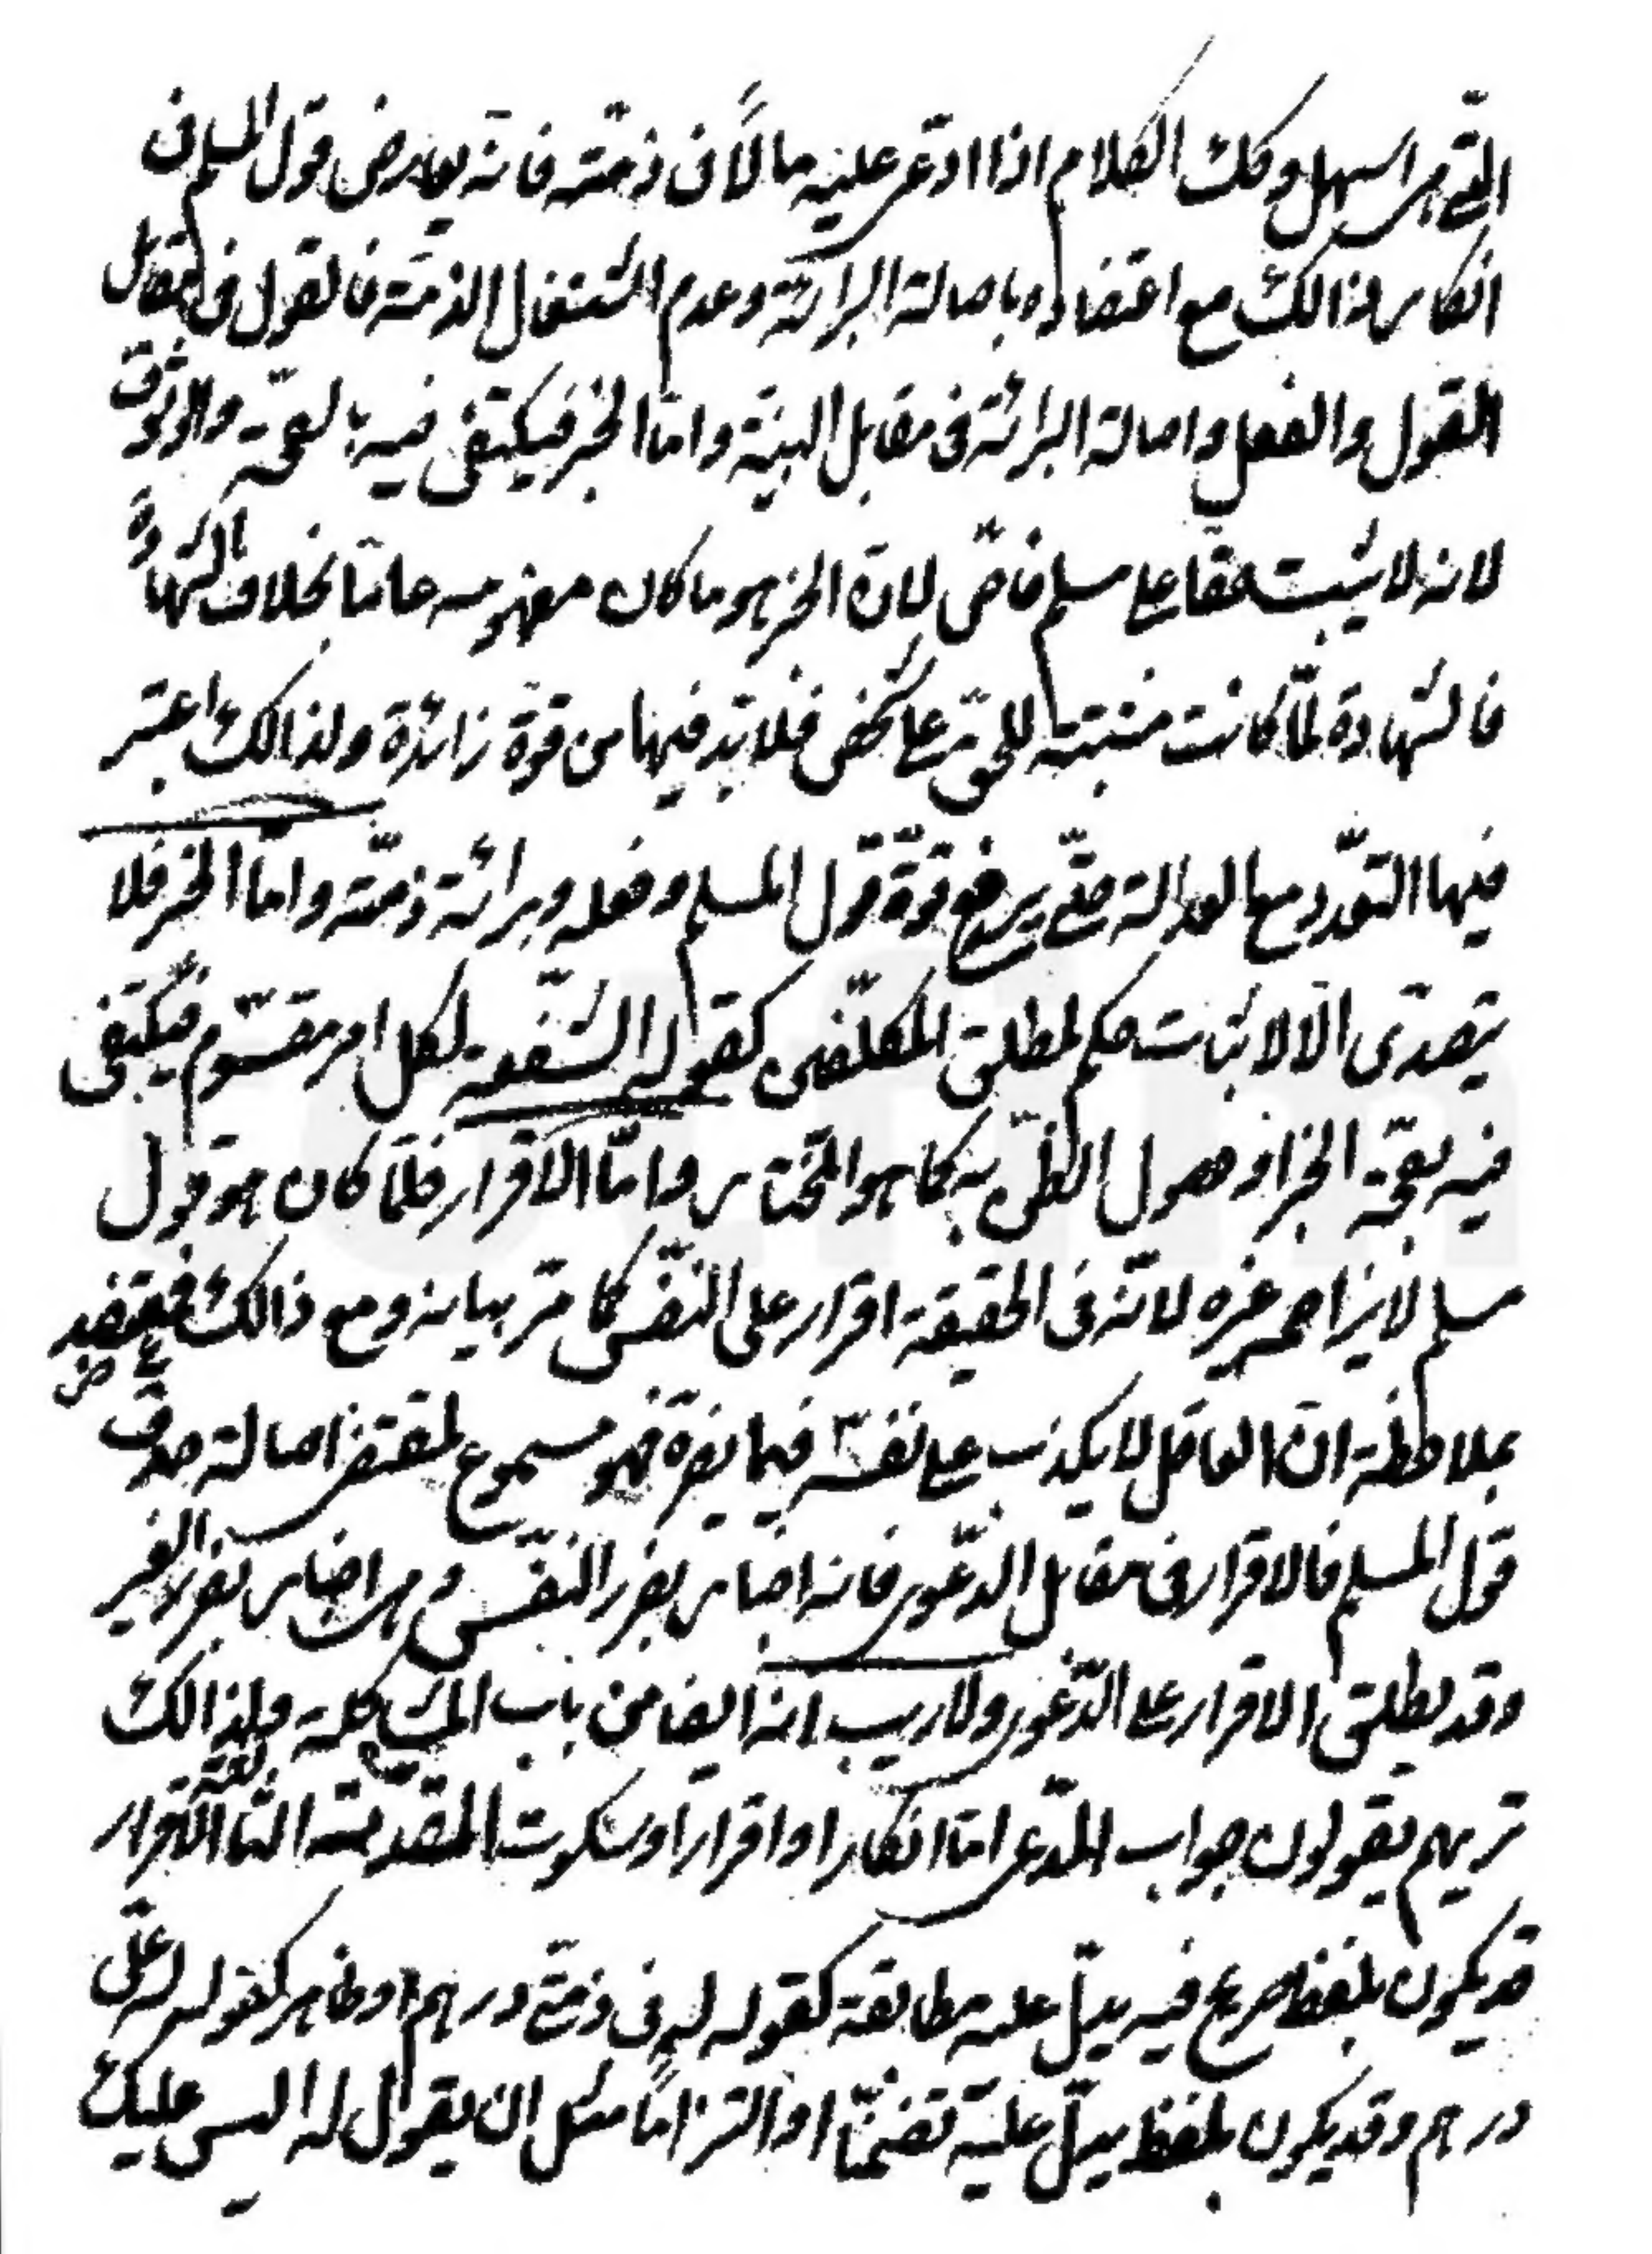 التى هى اسهل وكك الكلام اذا ادّعى عليه مالاً فى ذمّته فانّه يعارض قول المسلم فى
انكار ذالك مع اعتضاده باصالة البرائة وعدم اشتغال الذمّة فالقول فى مقابل
القول والفعل واصالة البرائة فى مقابل البيّنة وامّا الخبر فيكتفى فيه بالصحّة والوثوق
لانه لا يثبت حقا على مسلم خاصّ لانّ الخبر هو ما كان مفهومه عامّا بخلاف الشهادة
فالشهادة لمّا كانت مثبتة للحقّ على شخص فلا بدّ فيها من قوّة زائدة ولذالك اعتبر
فيها التعدّد مع العدالة حتّى يرفع قوّة قول المسلم وفعله وبرائة ذمّته وامّا الخبر فلا
يتصدّى الّا لاثبات حكم لمطلق المكلّفين كقوله الشفعة لكل امر مقسوم فيكتفى
فيه بصحّة الخبر او حصول الظنّ به كما هو المختار وامّا الاقرار فلمّا كان هو قول
مسلم لا يزاحم غيره لانّه فى الحقيقة اقرار على النفس كما مرّ بيانه ومع ذالك فيعتضد
بملاحظة انّ العاقل لا يكذب على نفسه فيما يضرّه فهو مسموع لمقتضى اصالة صدق
قول المسلم فالاقرار فى مقابل الدّعوى فانه اخبار بضرر النفس و هى اخبار بضرر الغير
وقد يطلق الاقرار على الدّعوى ولا ريب انه ايضا من باب المشاكلة ولذالك
تريهم يقولون جواب المدّعى امّا انكار او اقرار او سكوت المقدّمة الثالثة الاقرار
قد يكون بلفظ صريح فيه يدلّ عليه مطابقة كقوله له فى ذمّتى درهم او ظاهر كقوله له علىّ
درهم وقد يكون بلفظ يدلّ عليه تضمّنا او التزاماً مثل ان يقول له اليس عليك